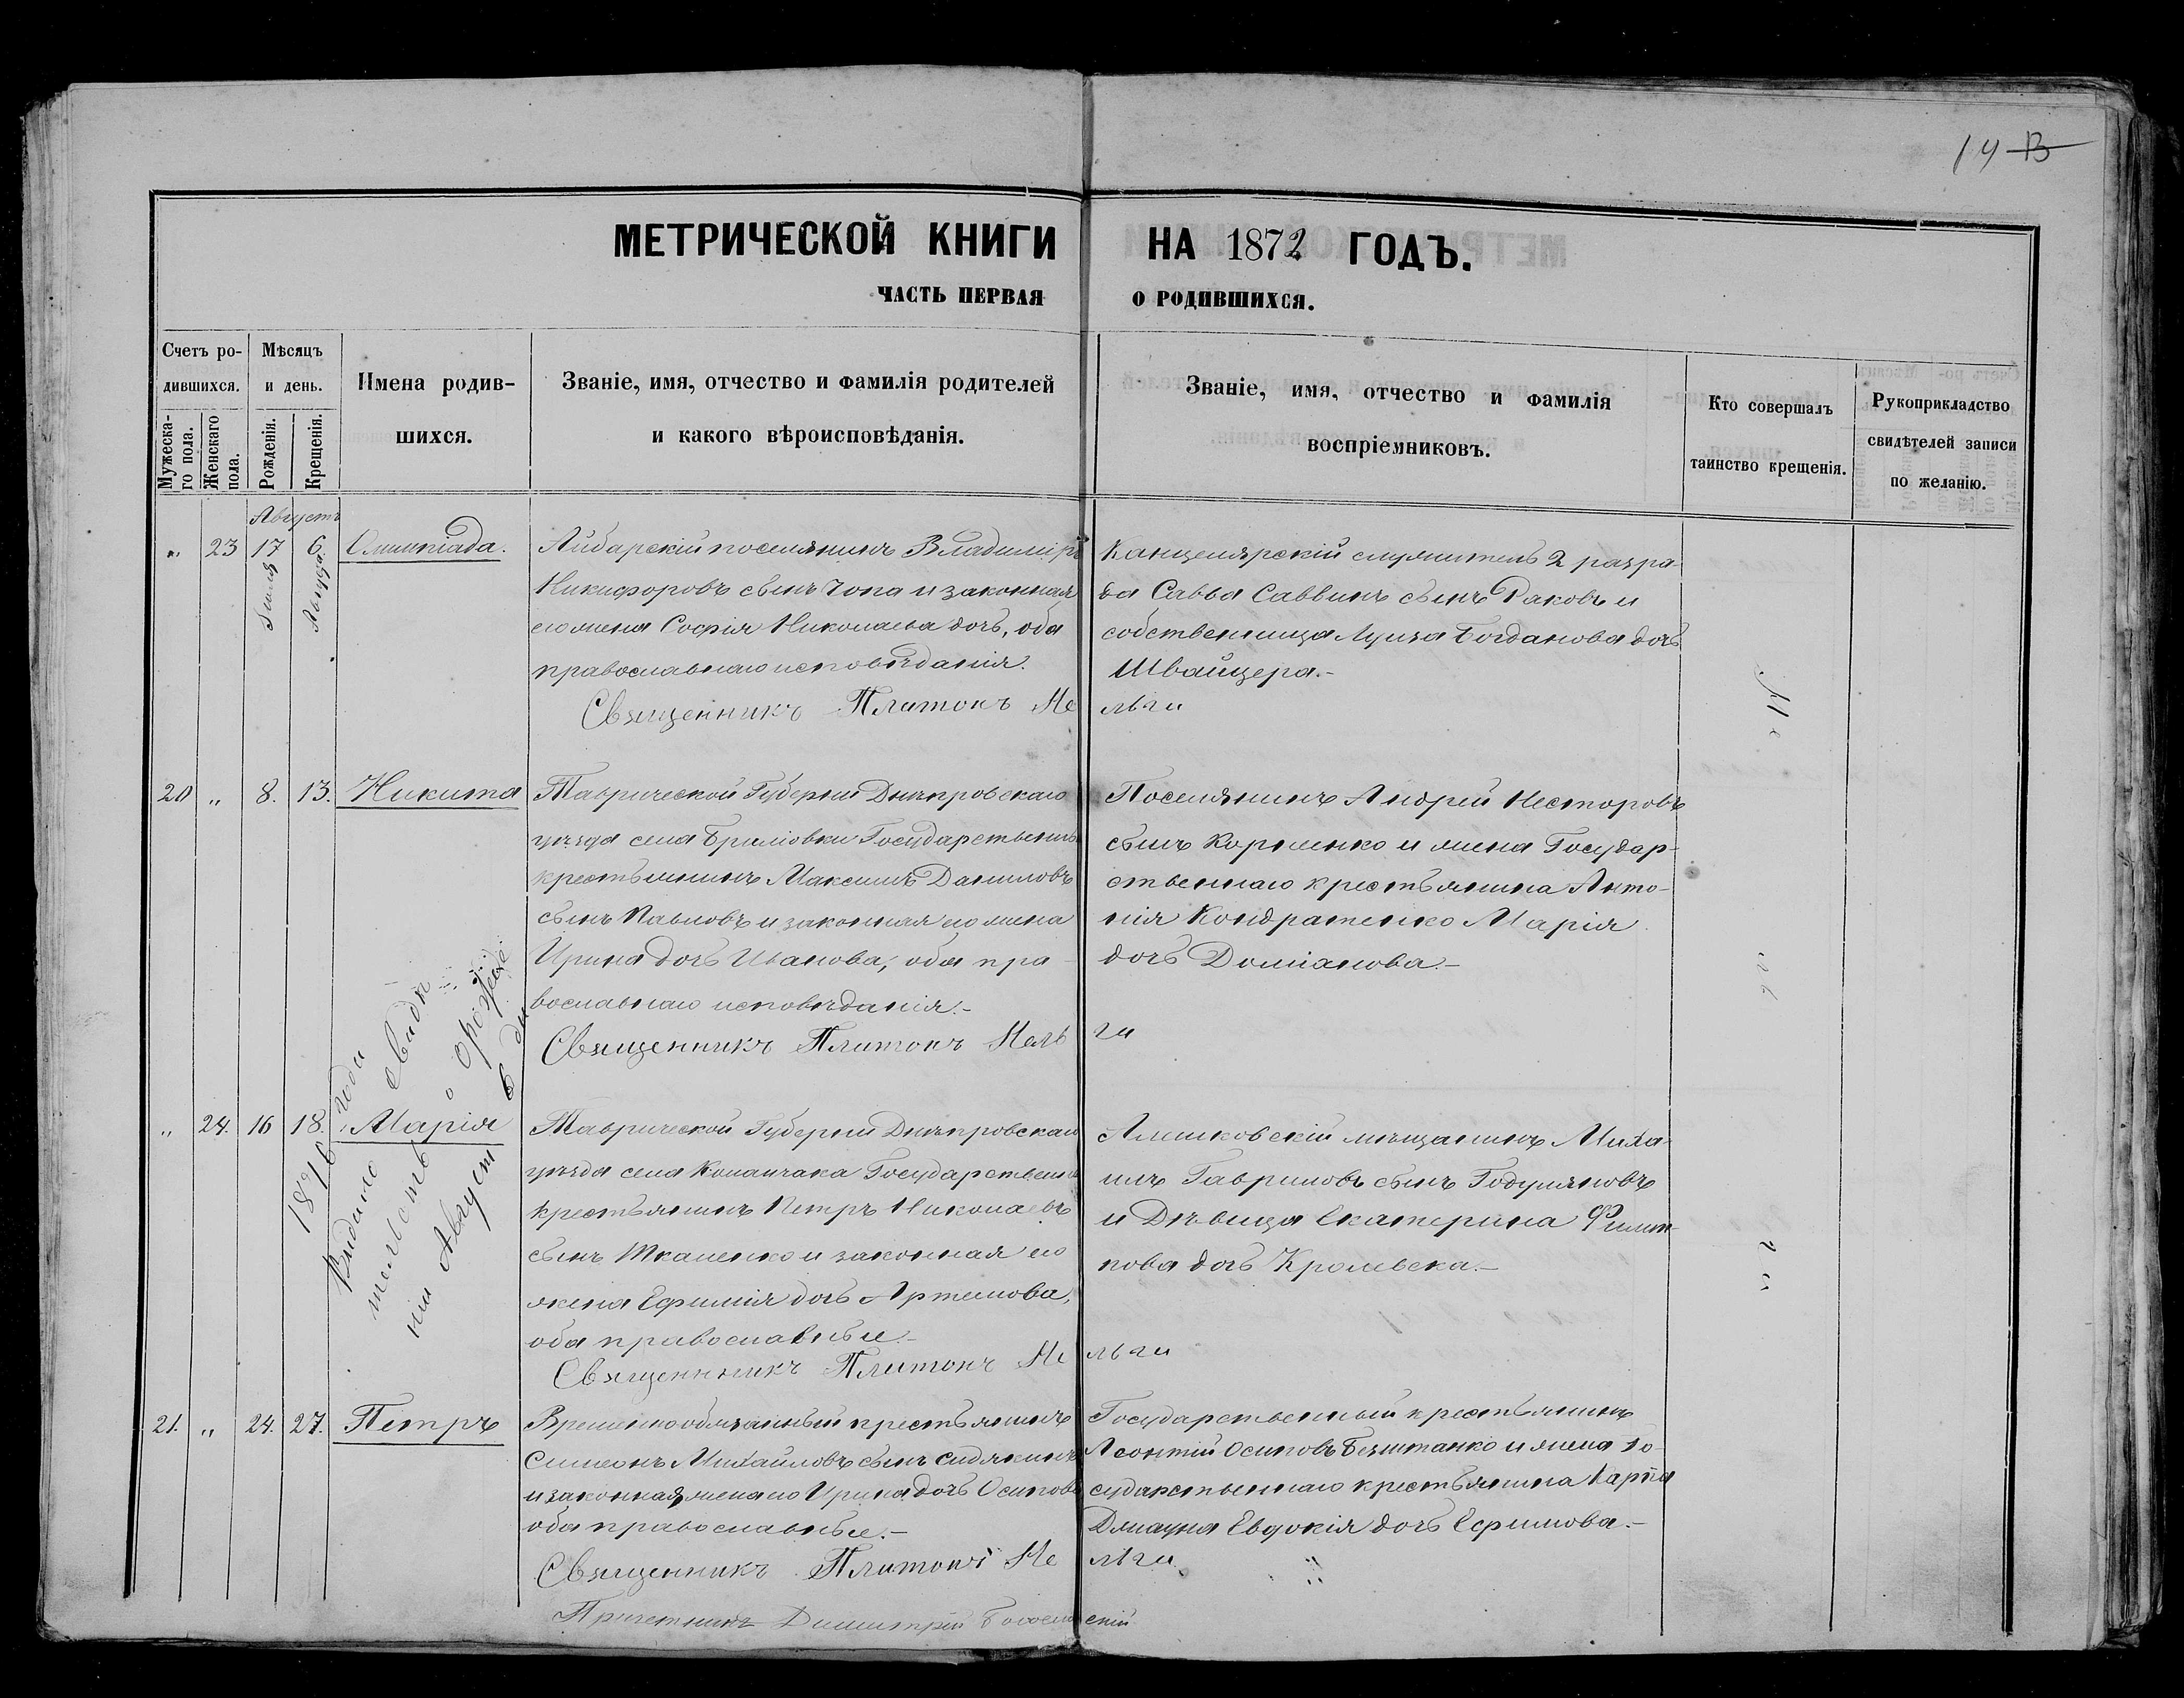 19 В
МЕТРИЧЕСКОЙ КНИГИ НА 1872 ГОДЪ.
ЧАСТЬ ПЕРВАЯ О РОДИВШИХСЯ.
Счетъ родившихся.
Мужескаго пола.
Женскаго пола.
Мѣсяцъ и день.
Рожденія.
Крещенія.
Имена родившихся.
Званіе, имя, отчество и фамилія родителей
и какого вѣроисповѣданія.
Званіе, имя, отчество и фамилія
воспріемниковъ.
Кто совершалъ
таинство крещенія.
Рукоприкладство
свидѣтелей записи
по желанію.
Августъ
„ 23 17 6 Олимпіада.
Іюля
Августа
Айбарскій поселянинъ Владиміръ
Никифоровъ сынъ Чопа и законная
его жена Софія Николаева дочь, оба
православнаго исповѣданія.
Священникъ Платонъ Мельги
Канцелярскій служитель 2 разря-
да Савва Саввинъ сынъ Раковъ и
собственница Луиза Богданова дочь
Швайцера.-
20 „ 8. 13. Никита
Таврической Губерніи Днѣпровскаго
уѣзда села Брилювки Государственный
крестьянинъ Максимъ Даниловъ
сынъ Павловъ и законная его жена
Ирина дочь Иванова, оба пра-
вославнаго исповѣданія.-
Священникъ Платонъ Мельги
Поселянинъ Андрей Несторовъ
сынъ Корненко и жена Государ-
ственнаго крестьянина Анто-
нія Кондратенко Марія
дочь Доміанова.-
„ 24. 16 18. Марія
1896 года
Видано свидѣ-
тельство о рожде-
ніи Август 6 дн
Таврической Губерніи Днѣпровскаго
уѣзда села Каланчака Государственный
крестьянинъ Петръ Николаевъ
сынъ Ткаленко и законная его
жена Ефимія дочь Артемова,
оба православные.-
Священникъ Платонъ Мельги
Алешковскій мѣщанинъ Миха-
илъ Гавриловъ сынъ Годуляновъ
и Дѣвица Екатерина Филип-
пова дочь Кролевска.-
21. „ 24. 27. Петръ
Временнообязанный крестьянинъ
Симеонъ Михайловъ сынъ Сидякинъ
и законная жена его Ирина дочь Осипова
оба православные.-
Священникъ Платонъ Мельги
Государственный крестьянинъ
Леонтій Осиповъ Безштанко и жена Го-
сударственнаго крестьянина Карпа
Дмауна Евдокія дочь Ефимова.-
Причетникъ Димитрій Богословскій